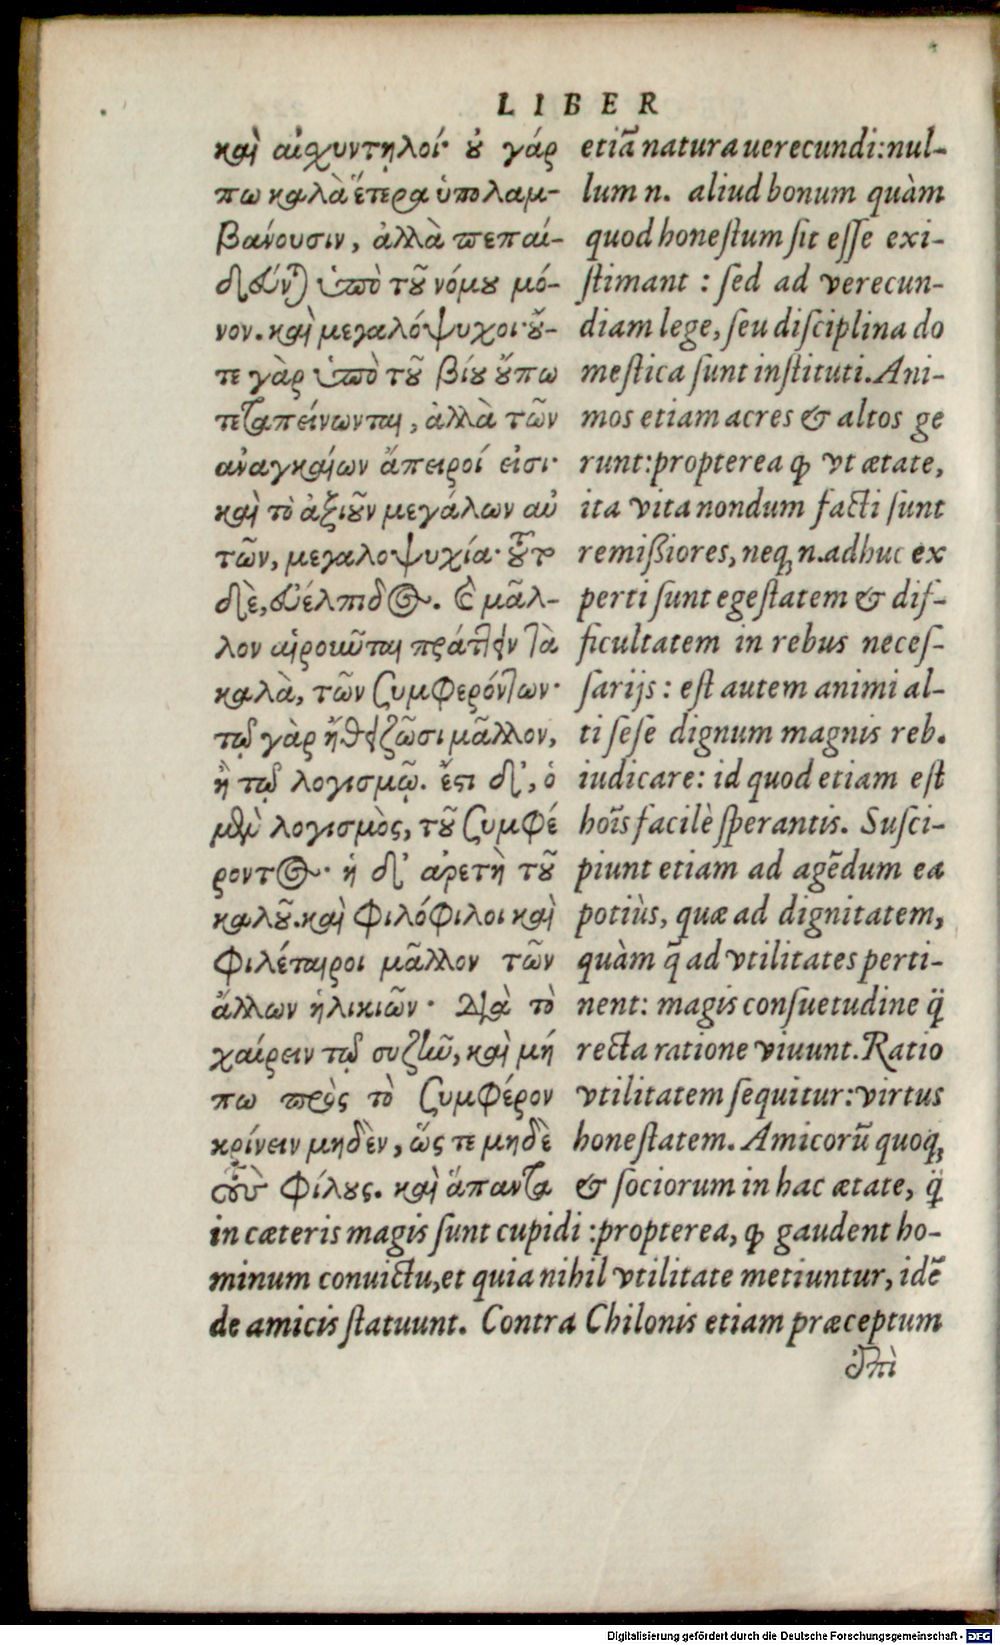 LIBER
καὶ αἰσχυντηλοί· οὐ γάρ
πω καλὰ ἕτερα ὑπολαμ-
βάνουσιν, ἀλλὰ πεπαί-
δευνται ὑπὸ τοῦ νόμου μό-
νον. καὶ μεγαλόψυχοι· οὔ-
τε γὰρ ὑπὸ τοῦ βίου οὔπω
τεταπείνωνται, ἀλλὰ τῶν
αναγκαίων ἄπειροί εἰσι·
καὶ τὸ ἀξιοῦν μεγάλων αὑ
τῶν, μεγαλοψυχία· τοῦτο
δὲ, εὐέλπιδος. καὶ μᾶλ-
λον αἱροιῦται πράττειν τὰ
καλὰ, τῶν συμφερόντων·
τῷ γὰρ ἤθει ζῶσι μᾶλλον,
ἢ τῷ λογισμῷ. ἔστι δ', ὁ
μὲν λογισμὸς, τοῦ συμφέ
ροντος· ἡ δ' ἀρετὴ τοῦ
καλοῦ. καὶ φιλόφιλοι καὶ
φιλέταιροι μᾶλλον τῶν
ἄλλων ἡλικιῶν· Διὰ τὸ
χαίρειν τῷ συζῆν, καὶ μή
πω πρὸς τὸ συμφέρον
κρίνειν μηδὲν, ὥς τε μηδὲ
τοὺς φίλους. καὶ ἅπαντα
etiā natura uerecundi: nul-
lum n. aliud bonum quàm
quod honestum sit esse exi-
stimant : sed ad verecun-
diam lege, seu disciplina do
mestica sunt instituti. Ani-
mos etiam acres & altos ge
runt: propterea ꝙ vt ætate,
ita vita nondum facti sunt
remißiores, neq; n. adhuc ex
perti sunt egestatem & dif-
ficultatem in rebus neces-
sarijs : est autem animi al-
ti sese dignum magnis reb.
iudicare: id quod etiam est
hoīs facilè sperantis. Susci-
piunt etiam ad agēdum ea
potiùs, quæ ad dignitatem,
quàm q̄ ad vtilitates perti-
nent: magis consuetudine q̈
recta ratione viuunt. Ratio
vtilitatem sequitur: virtus
honestatem. Amicorū quoq;
& sociorum in hac ætate, q̈
in cæteris magis sunt cupidi : propterea, ꝙ gaudent ho-
minum conuictu, et quia nihil vtilitate metiuntur, idē
de amicis statuunt. Contra Chilonis etiam præceptum
ἐπὶ
Digitalisierung gefördert durch die Deutsche Forschungsgemeinschaft - DFG